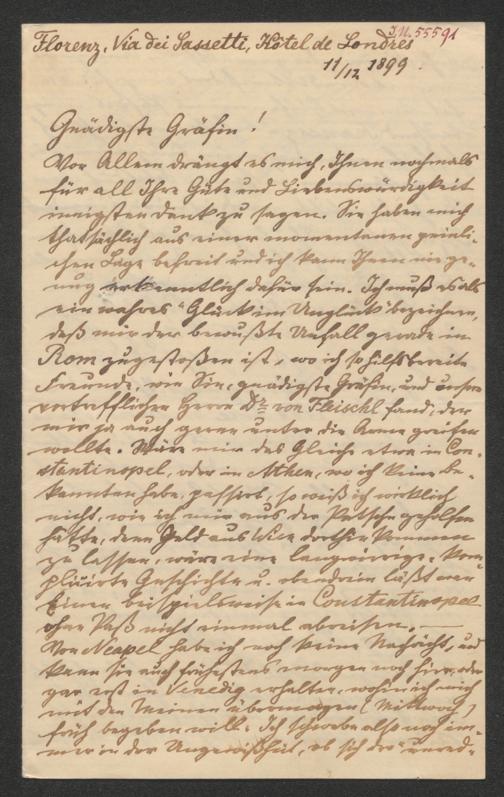 J.N. 55591
Florenz, Via dei Sassetti, Hôtel de Londres
11/12 1899.
Gnädigste Gräfin!
Vor Allem drängt es mich, Ihnen nochmals
für all Ihre Güte und Liebenswürdigkeit
innigsten Dank zu sagen. Sie haben mich
thatsächlich aus einer momentanen peinli-
chen Lage befreit und ich kann Ihnen nie ge-
nug erkenntlich dafür sein. Ich muß es als
ein wahres "Glück im Unglück" bezeichnen,
daß mir der bewußte Unfall gerade in
Rom zugestoßen ist, wo ich so hilfsbereite
Freunde, wie Sie, gnädigste Gräfin, und unsern
vortrefflichen Herrn Dr. von Fleischl fand, der
mir ja auch gerne unter die Arme greifen
wollte. Wäre mir das Gleiche etwa in Con-
stantinopel, oder in Athen, wo ich keine Be-
kannten habe, passirt, so weiß ich wirklich
nicht, wie ich mir aus der Patsche geholfen
hätte, denn Geld aus Wien dorthin kommen
zu lassen, wäre eine langwierige, kom-
plizirte Geschichte u. obendrein läßt man
Einen beispielsweise in Constantinopel
ohne Paß nicht einmal abreisen. —
Von Neapel habe ich noch keine Nachricht, und
kann sie auch frühestens morgen noch hier, oder
gar erst in Venedig erhalten, wohin ich mich
mit den Meinen übermorgen (Mittwoch)
früh begeben will. Ich schwebe also noch im-
mer in der Ungewißheit, ob sich der "unred-